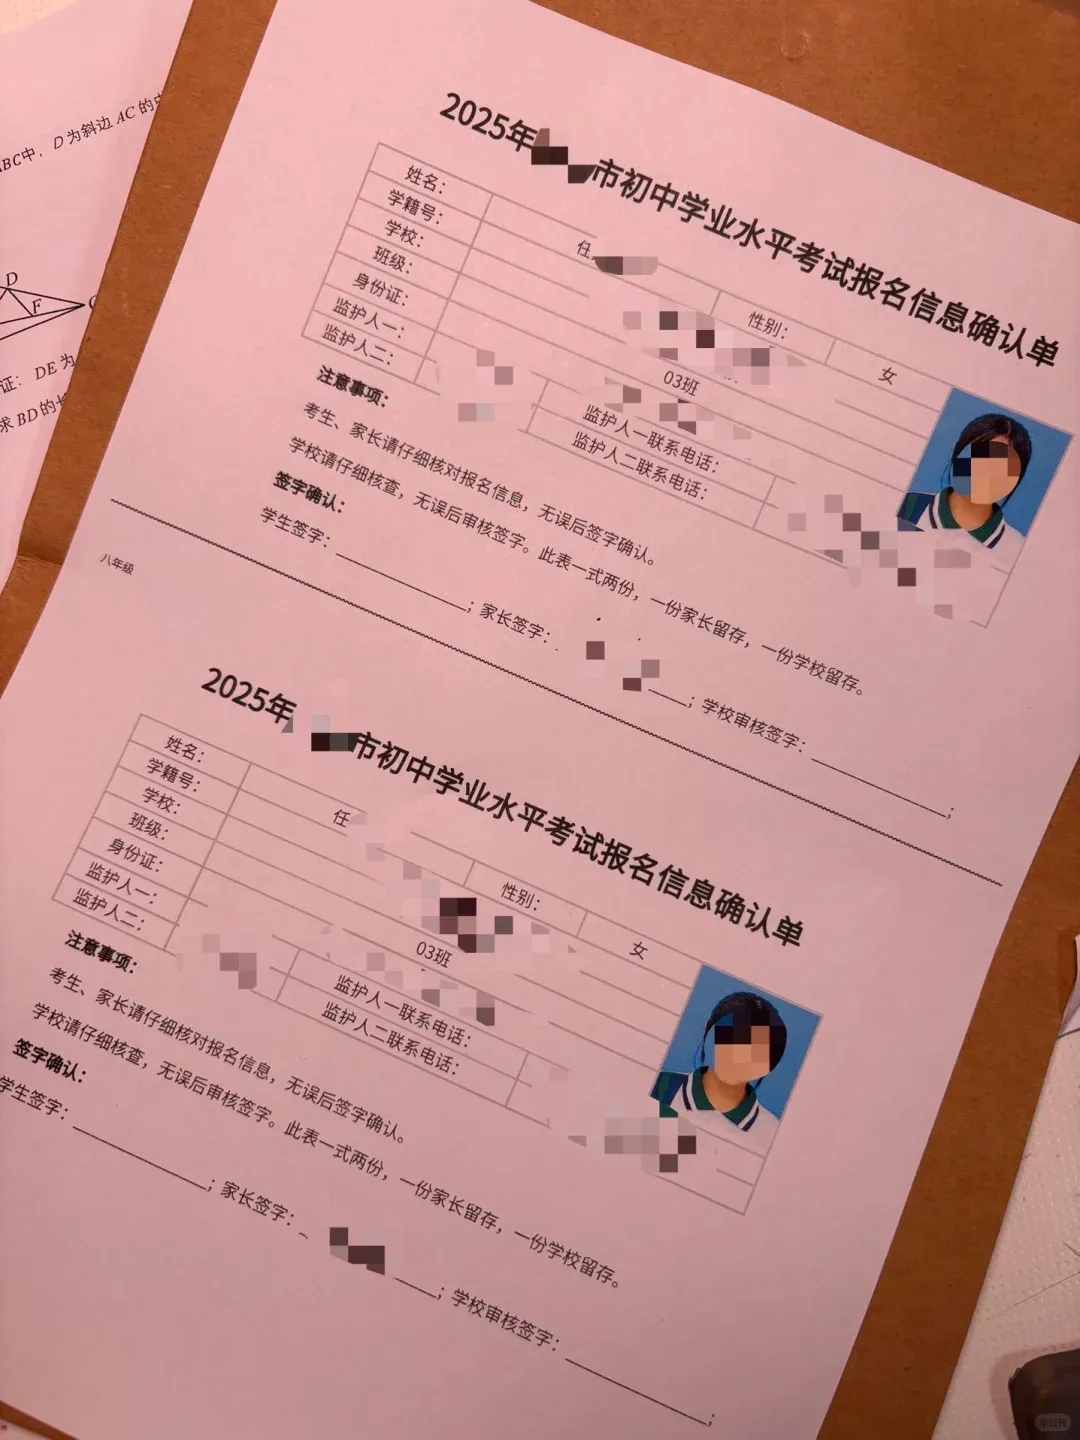 BC中，D为斜边AC的
D
F
证：DE为
求BD的长
2025年
市初中学业水平考试报名信息确认单
姓名：
任
性别：
女
学籍号：
学校：
班级：
03班
身份证：
监护人一：
监护人一联系电话：
监护人二：
监护人二联系电话：
注意事项：
考生、家长请仔细核对报名信息，无误后签字确认。
学校请仔细核查，无误后审核签字。此表一式两份，一份家长留存，一份学校留存。
签字确认：
学生签字：；家长签字：；学校审核签字：；
八年级
2025年
市初中学业水平考试报名信息确认单
姓名：
任
性别：
女
学籍号：
学校：
班级：
03班
身份证：
监护人一：
监护人一联系电话：
监护人二：
监护人二联系电话：
注意事项：
考生、家长请仔细核对报名信息，无误后签字确认。
学校请仔细核查，无误后审核签字。此表一式两份，一份家长留存，一份学校留存。
签字确认：
学生签字：；家长签字：；学校审核签字：；
小红书